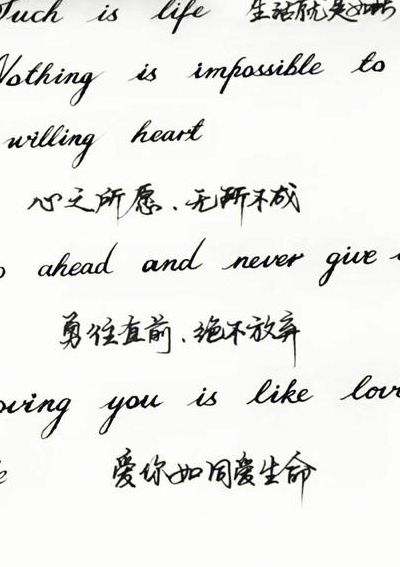 Such is life 生活就是如此
Nothing is impossible to
willing heart
心之所愿、无所不成
ahead and never give
勇往直前、绝不放弃
oving you is like lov
爱你如同爱生命